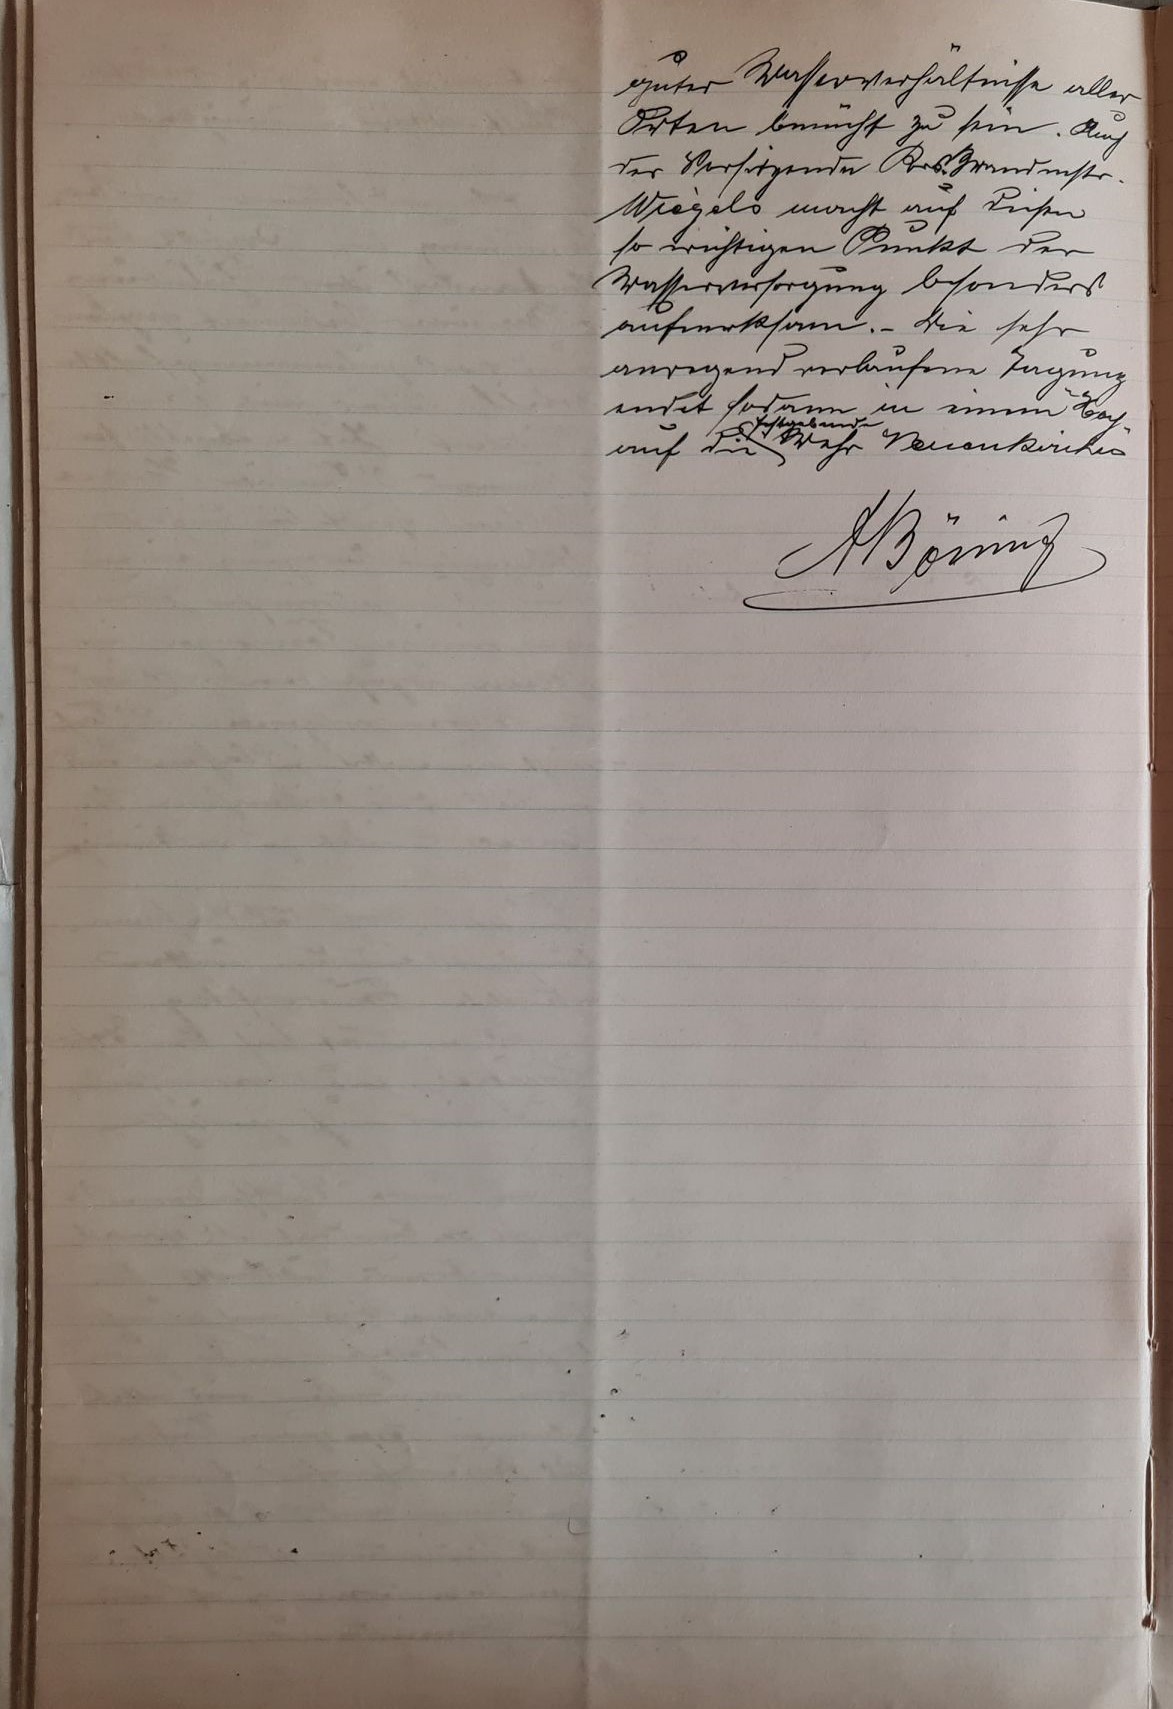 guter Wasserverhältnisse aller
Orten bemüht zu sein. Auch
der Vorsitzende Krs. Brandmstr.
Wiegels macht auf diesen
so wichtigen Punkt der
Wasserversorgung besonders
aufmerksam. – Die sehr
anregend verlaufene Tagung
endet sodann in einem "Hoch"
festgebende
auf die Wehr Neuenkirchen
A Böning